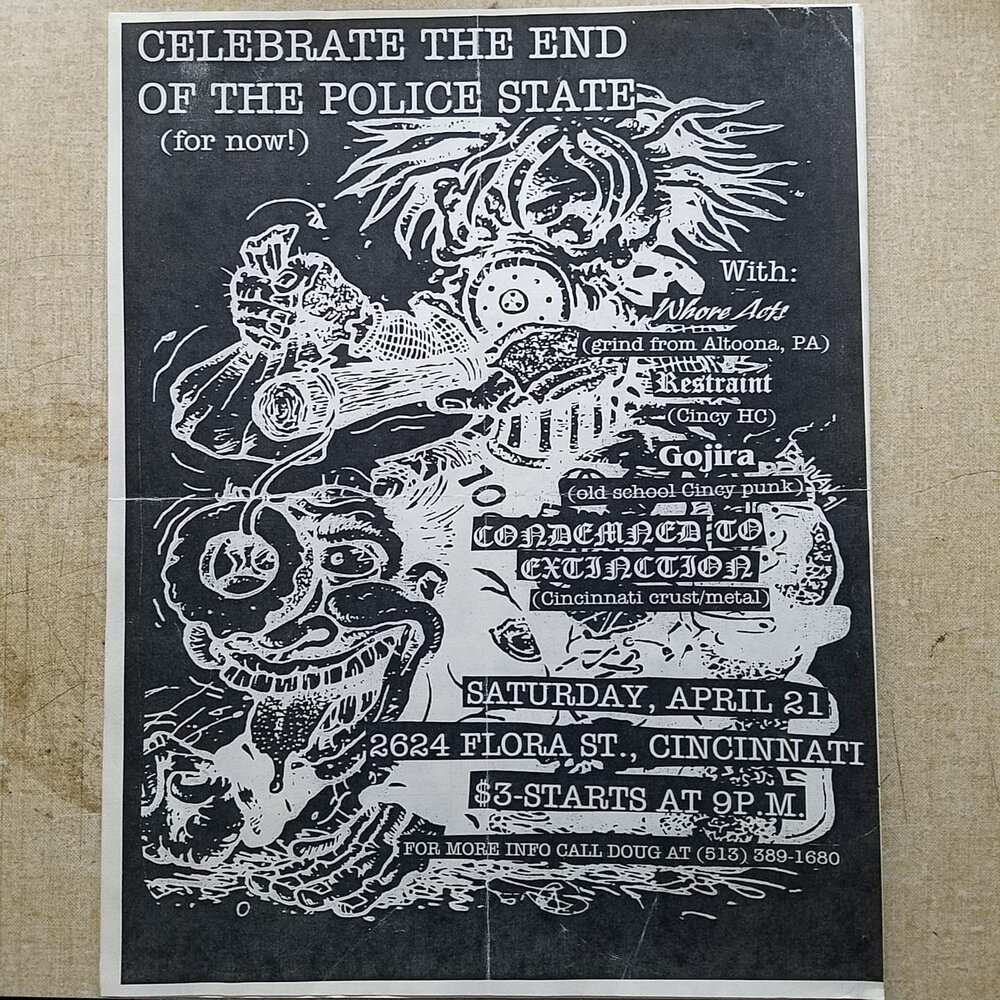 CELEBRATE THE END
OF THE POLICE STATE
(for now!)
With:
Whore Acts
(grind from Altoona, PA)
Restraint
(Cincy HC)
Gojira
(old school Cincy punk)
CONDEMNED TO
EXTINCTION
(Cincinnati crust/metal)
10
SATURDAY, APRIL 21
2624 FLORA ST., CINCINNATI
$3-STARTS AT 9P.M.
FOR MORE INFO CALL DOUG AT (513) 389-1680